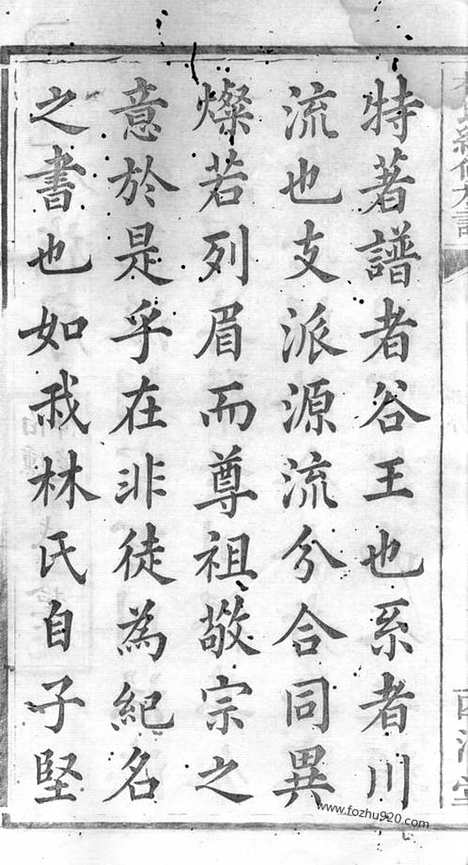 特著譜者谷王也系者川
流也支派源流分合同異
燦若列眉而尊祖敬宗之
意於是乎在非徒為紀名
之書也如我林氏自子堅
www.fozhu920.com